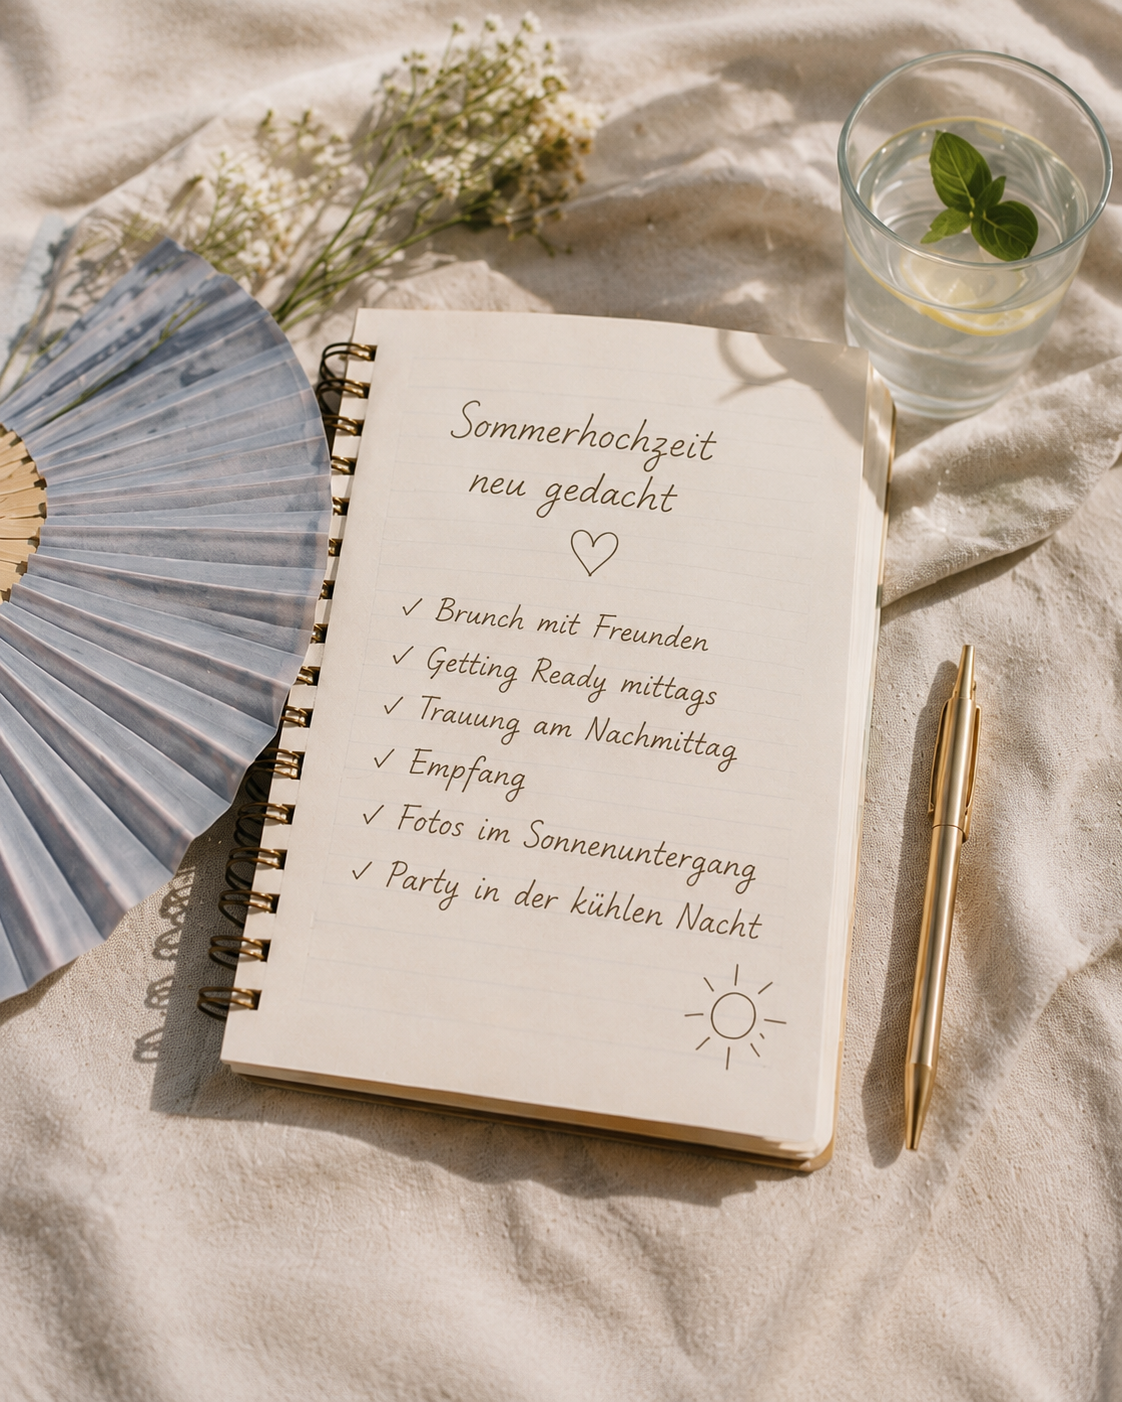 Sommerhochzeit
neu gedacht
✓ Brunch mit Freunden
✓ Getting Ready mittags
✓ Trauung am Nachmittag
✓ Empfang
✓ Fotos im Sonnenuntergang
✓ Party in der kühlen Nacht